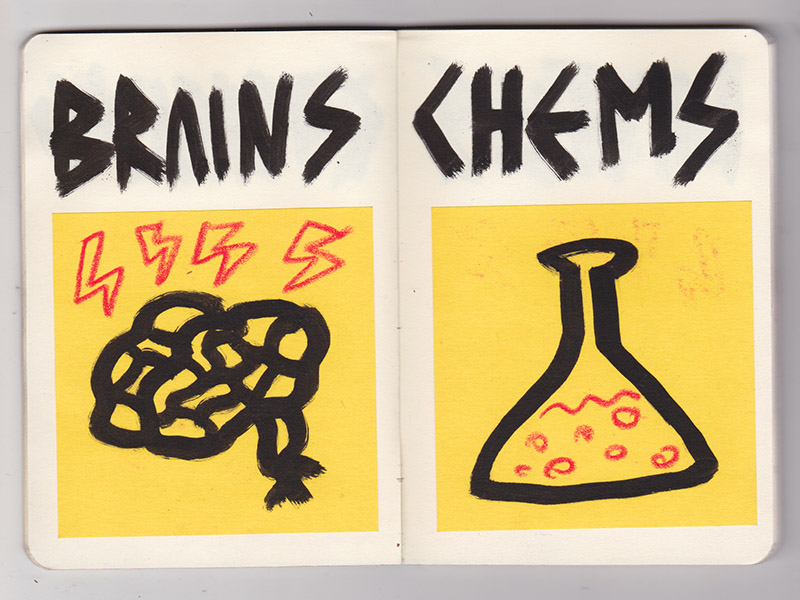 BRAINS
CHEMS